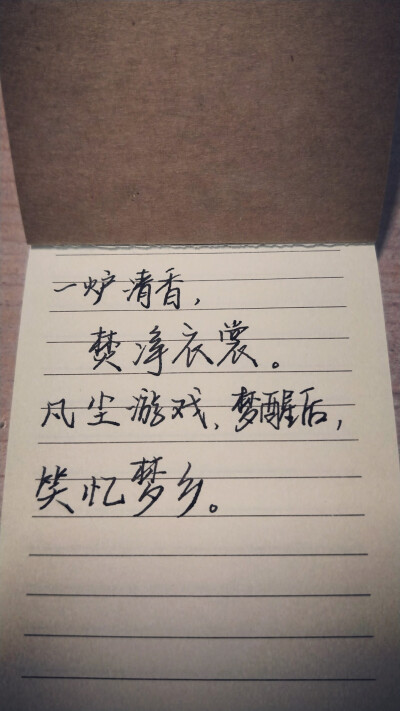 一炉清香，
焚净衣裳。
风尘游戏，梦醒后，
笑忆梦乡。